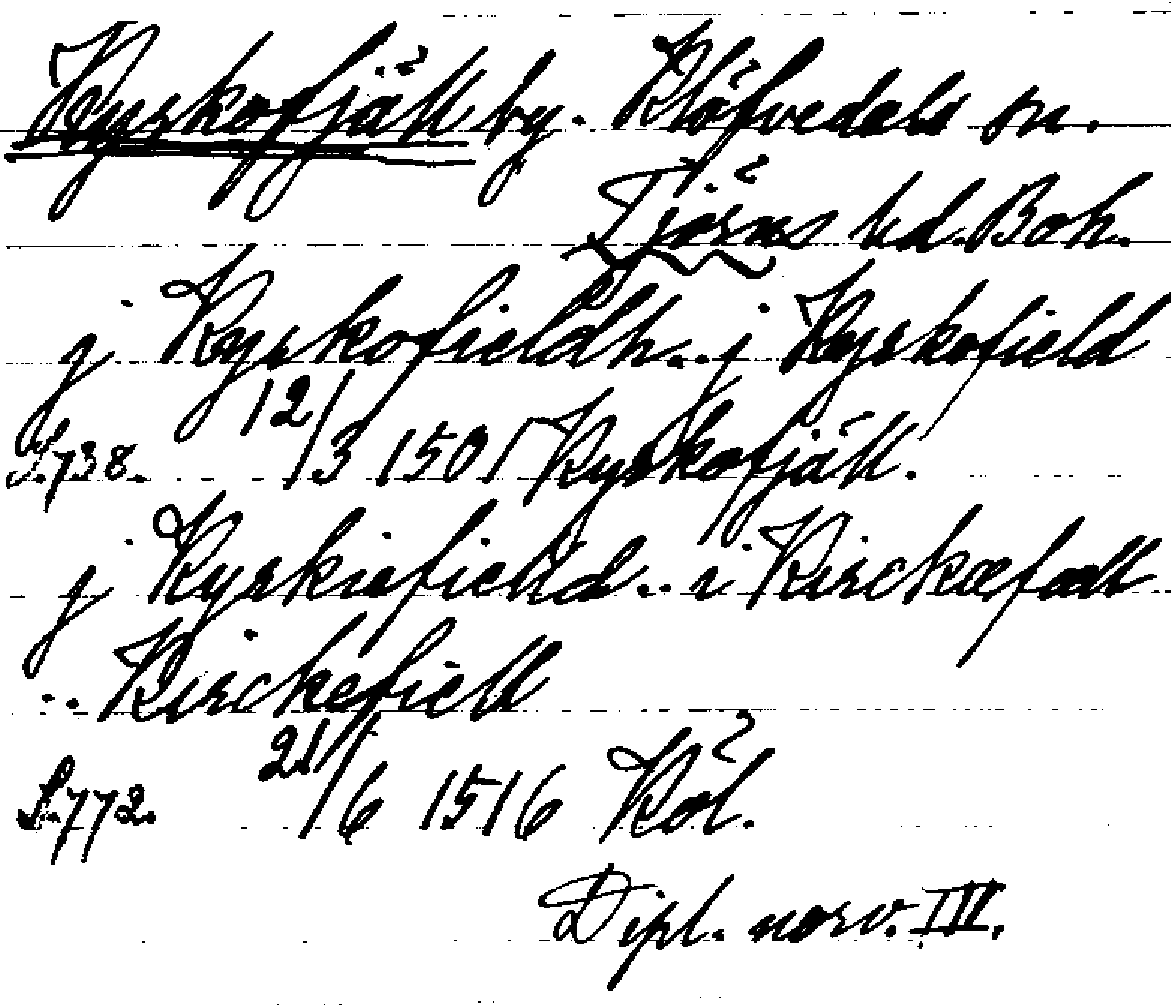 Kyrkofjäll by. Klöfvedals sn.
Tjörns hd. Boh.
j Kyrkofieldh.. j Kyrkofield
S.738. 12/3 1501 Kyrkofjäll.
j Kyrkiefielld.. i Kirckæfæll
.. Kirckefiell
S.772. 21/6 1516 Köl.
Dipl. norv. III.